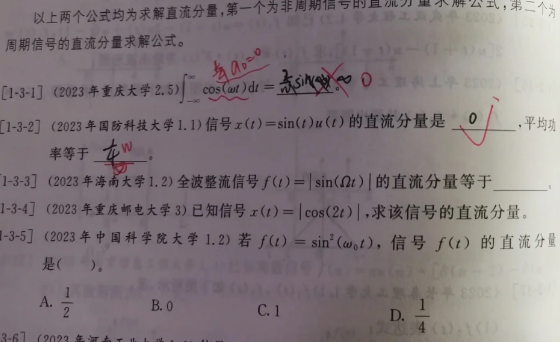 以上两个公式均为求解直流分量,第一个为非周期信号的直流分量求解公式,第二个为
周期信号的直流分量求解公式。
[1-3-1] (2023年重庆大学2.5)∫_{-∞}^{∞} cos(ωt)dt = 0
[1-3-2] (2023年国防科技大学1.1)信号x(t)=sin(t)u(t)的直流分量是 0 ,平均功
率等于 W 。
1-3-3] (2023年海南大学1.2)全波整流信号f(t)=|sin(Ωt)|的直流分量等于______。
1-3-4] (2023年重庆邮电大学3)已知信号x(t)=|cos(2t)|,求该信号的直流分量。
1-3-5] (2023年中国科学院大学1.2)若f(t)=sin²(ω₀t),信号f(t)的直流分量
是( )。
A. 1/2 B. 0 C. 1 D. 1/4
3-6]